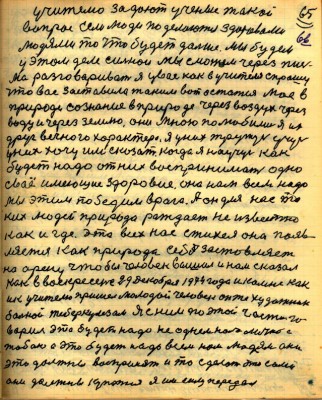 65
66
учителю задают ученые такой
вопрос если люди поделаются здоровыми
людями то это будет далше. мы будем
у этом деле сильны мы сможем через
разговариват я
что вас заставило таким вот остатся мое в
природе сознание в природе через воздух через
воду и через землю, они мною полюбилис я их
друг вечного характера. я у них
у них хочу им сказат когда я научус как
будет надо от них воспринимат одно
своё имеющие здоровие. она нам всем надо
мы этим победим врага. я один
ких людей природа рождает не известно
как и где. это всех нас стихея она появ
ляется как природа себя заставляет
на арену чтобы человек вишол и нам сказал
как в воскресение 29 декабря 1974 года
ик учителю пришол молодой человек он же художник
болной тиберкулезам я с ним по этой части го
ворил это будет надо не однем
тобою а это будет надо всем нам людям они
это должны воспринят и то сделат это самое
они должны купатся я им силу передал